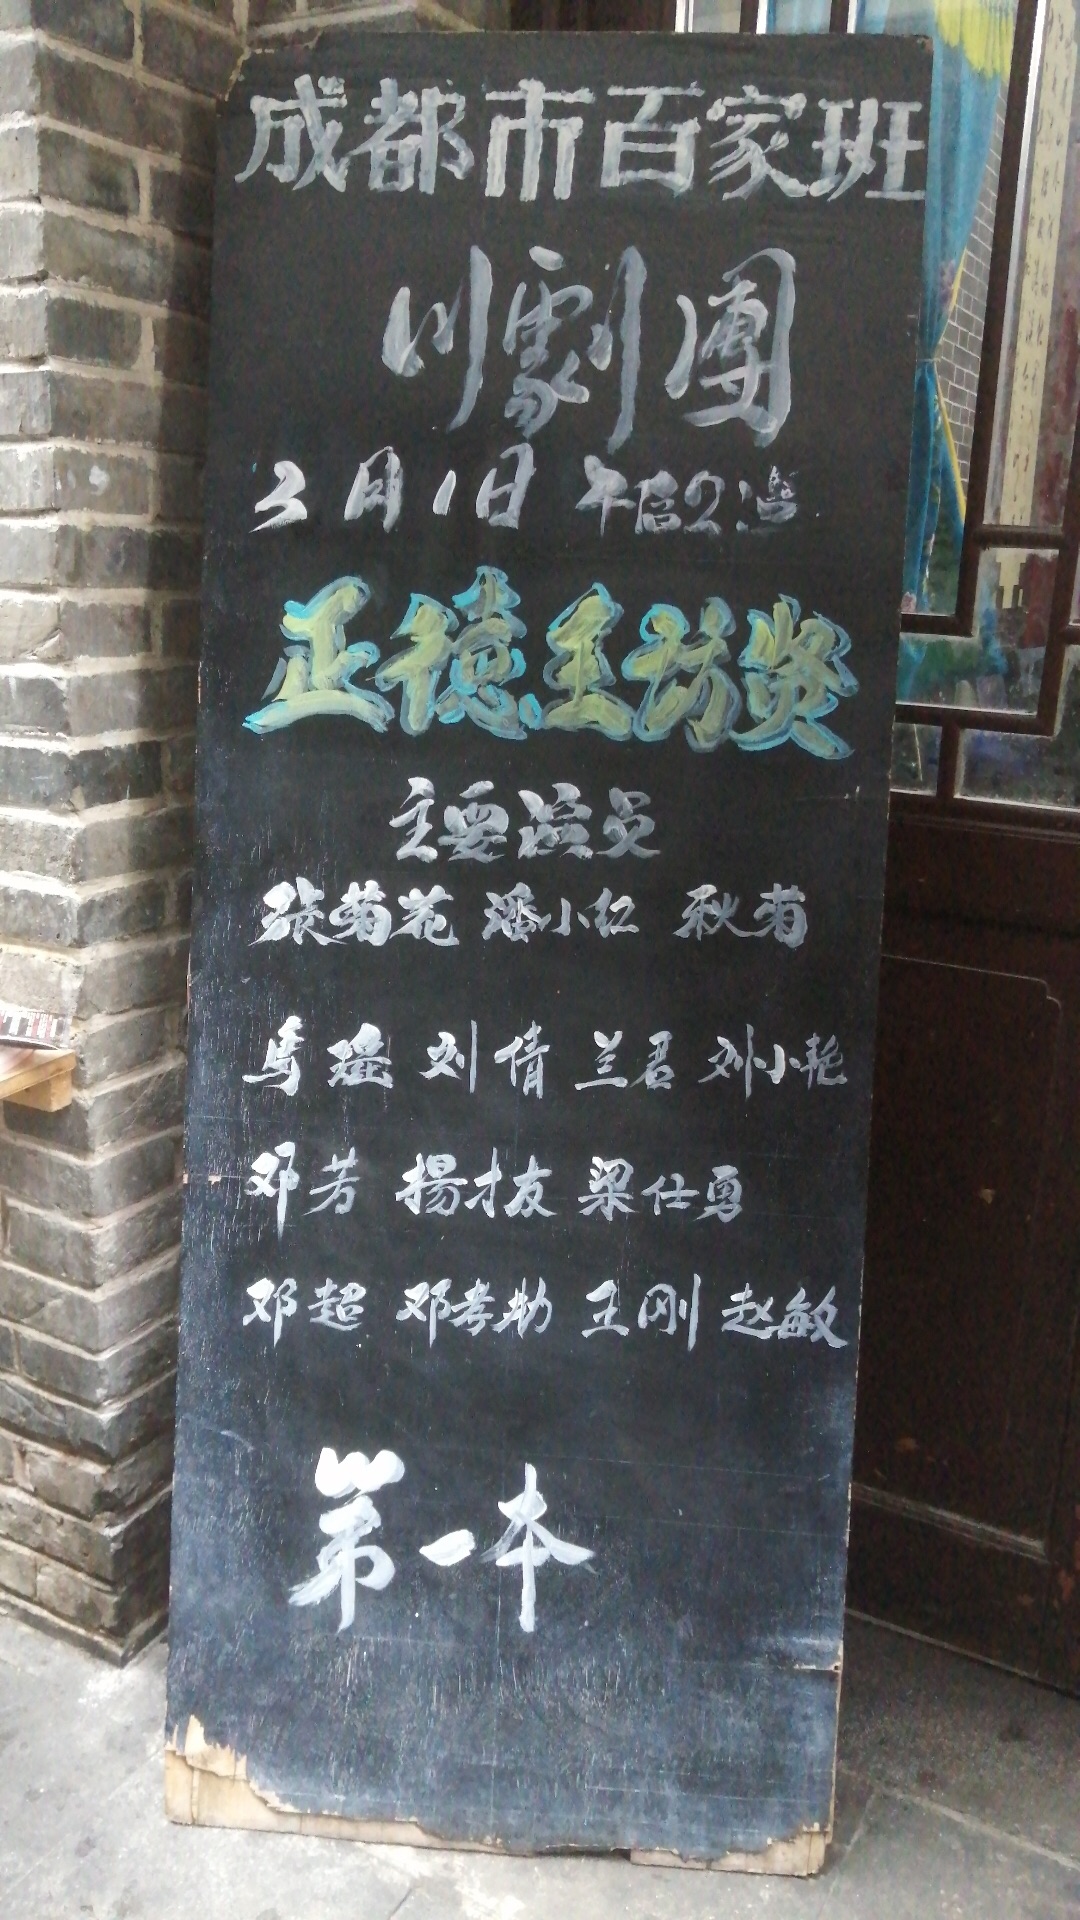 成都市百家班
川劇團
3月1日 午后2:
正德王访贤
主要演员
张菊花 潘小红 秋菊
馬瑶 刘倩 兰君 刘小艳
邓芳 揚才友 梁仕勇
邓超 邓孝勋 王刚 赵敏
第一本